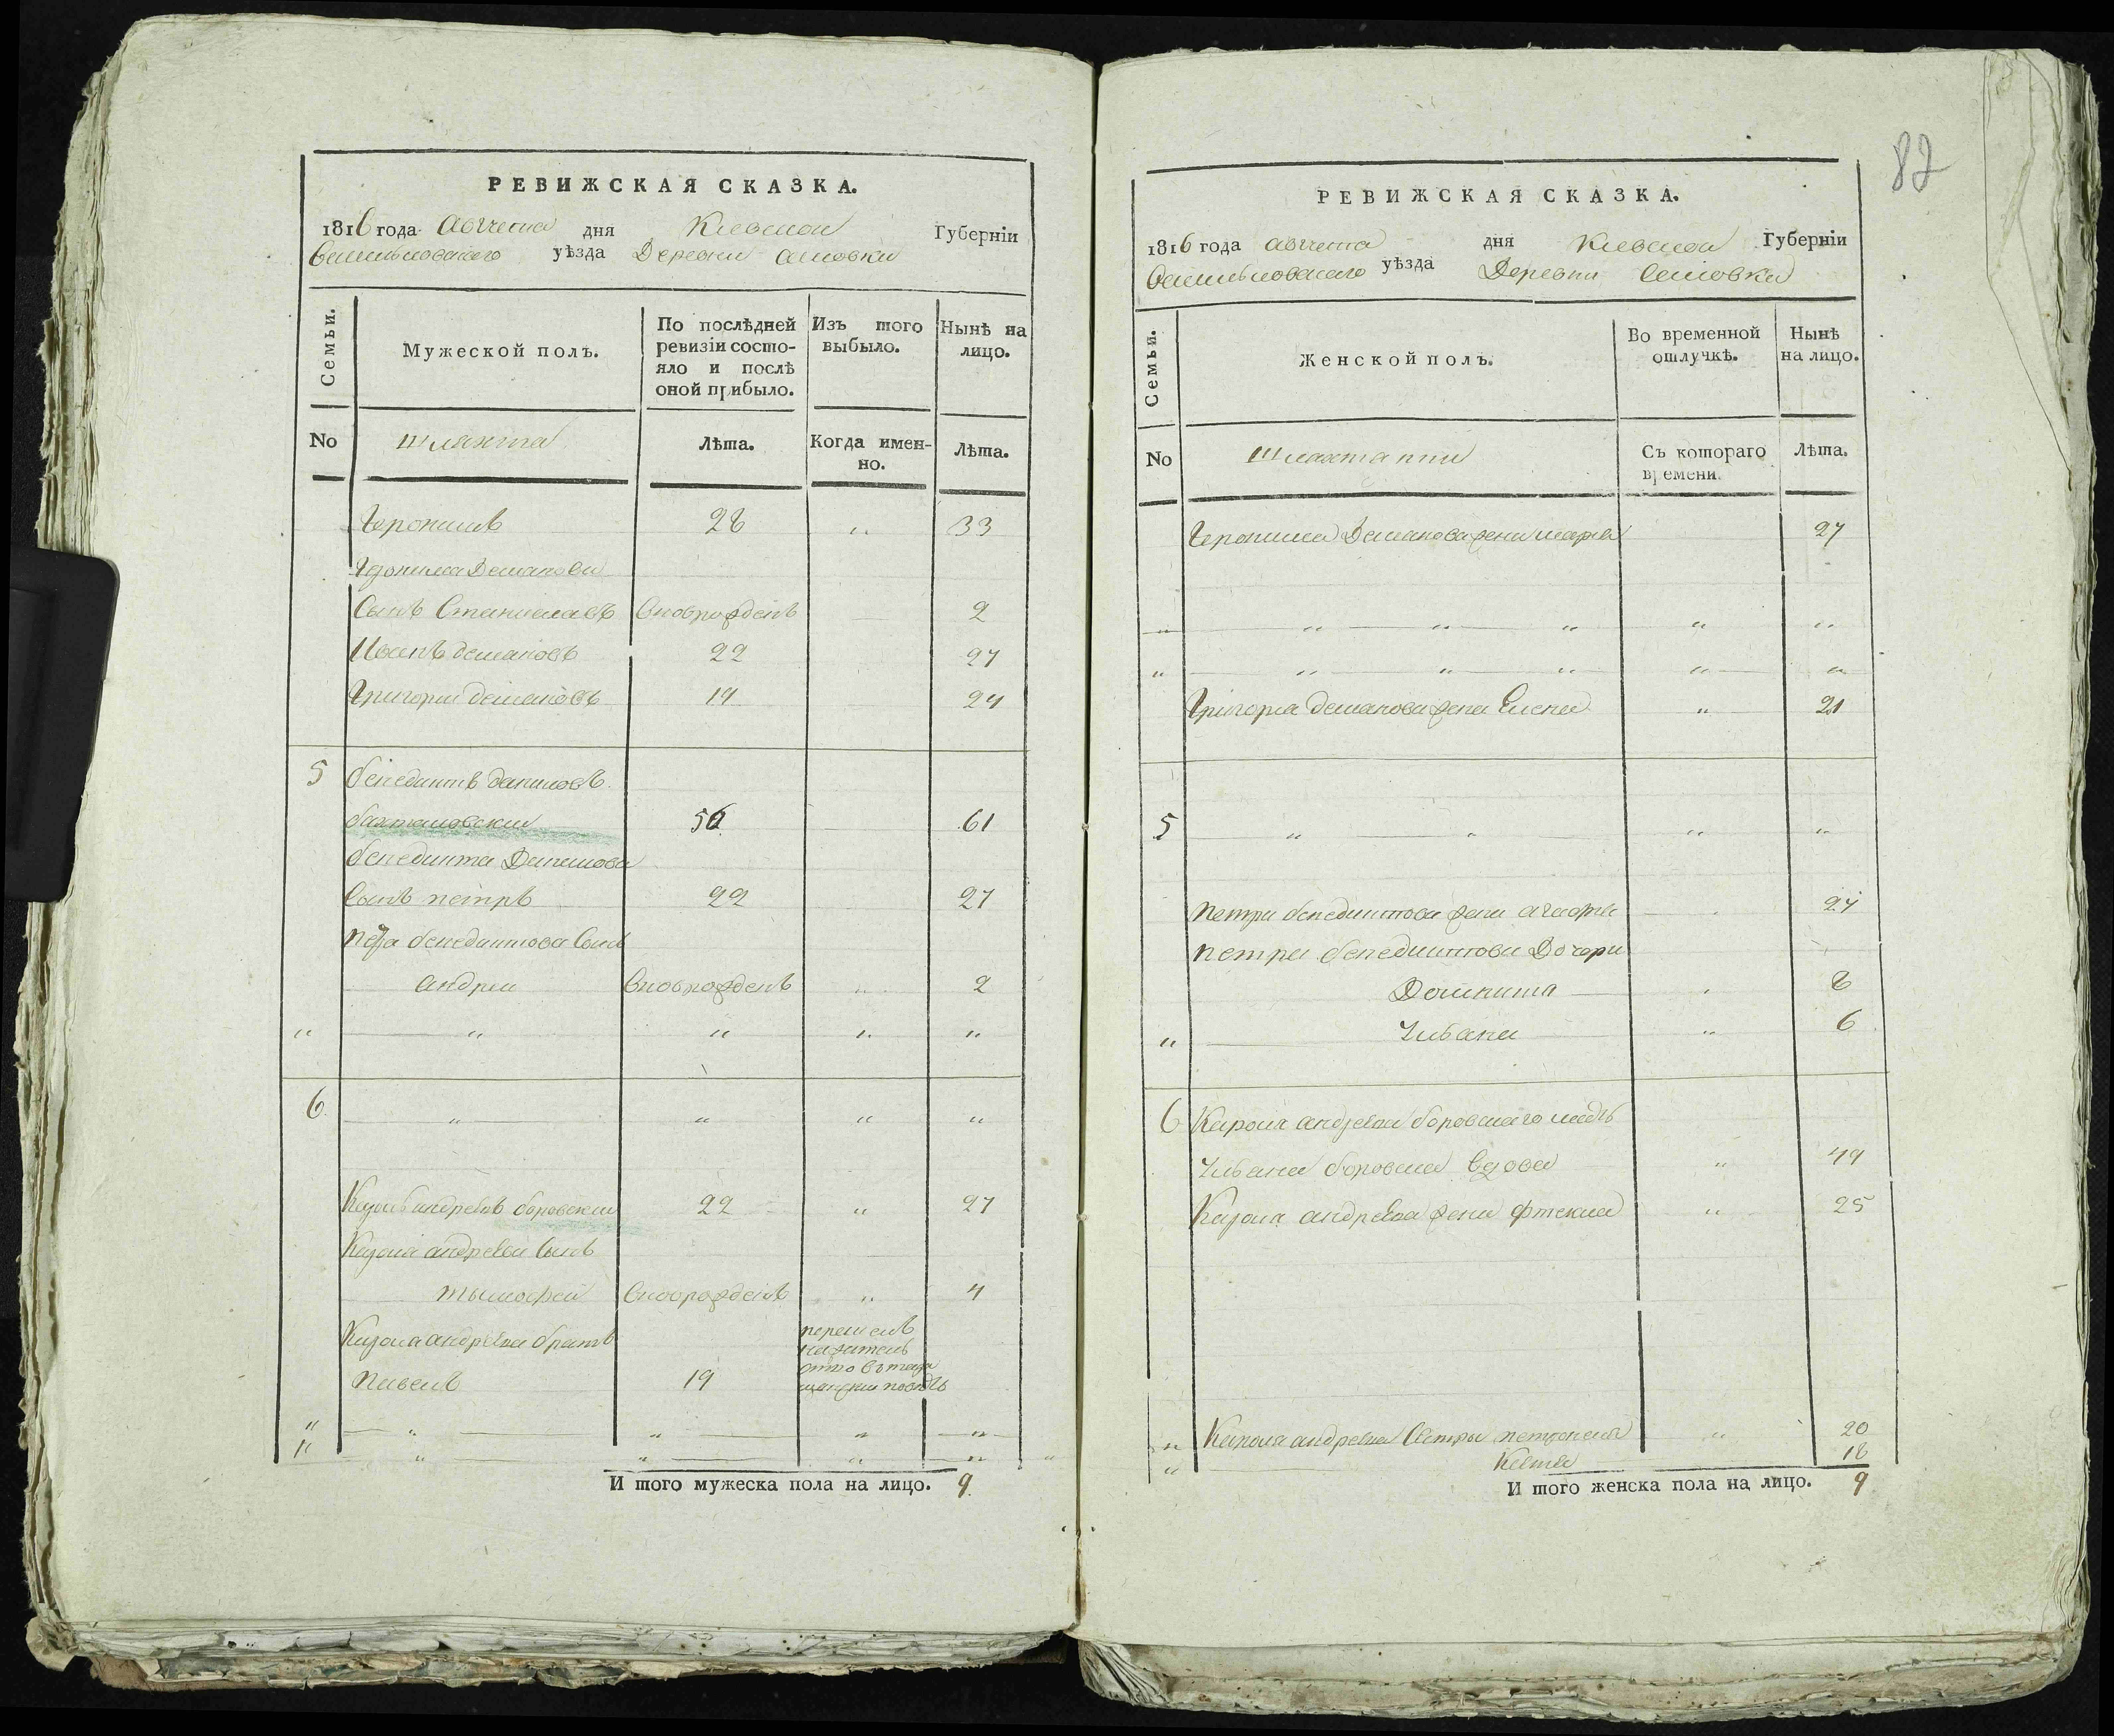 РЕВИЖСКАЯ СКАЗКА.
1816 года Августа дня Киевской Губерніи
Васильковского уѣзда Деревни
Семьи.
Мужеской полъ.
По послѣдней ревизіи состояло и послѣ оной прибыло.
Изъ того выбыло.
Нынѣ на лицо.
No шляхта Лѣта. Когда именно. Лѣта.
Геронимъ 28 „ 33
Геронима Демянова
Сынъ Станиславъ вновърожденъ 2
Иосипъ демяновъ 22 27
Григорий демяновъ 19 24
5 бенедиктъ даниловъ
56 61
бенедикта Данилова
Сынъ петръ 22 27
петра бенедиктова Сынъ
андрей вновърожденъ „ 2
„ „ „ „ „
6 „ „ „ „
Каролъ андреевъ боровский 22 „ 27
Кароля андреева Сынъ
тымофей вновърожденъ „ 4
Кароля андреева братъ перешелъ
на жителство в
Павелъ 19
„ „ „ „ „
„ „ „ „ „ „
И того мужеска пола на лицо. 9
82
РЕВИЖСКАЯ СКАЗКА.
1816 года августа дня Киевской Губерніи
Васильковского уѣзда Деревни
Семьи.
Женской полъ.
Во временной отлучкѣ.
Нынѣ на лицо.
No Шляхтянки Съ котораго времени. Лѣта.
Геронима Демянова жена марья 27
„ „ „ „ „ „
„ „ „ „ „ „
Григорія демянова жена Елена „ 21
5 „ „ „ „
петра бенедиктова жена агафия 27
петра бенедиктова Дочери
Домицила 8
„ Улияна „ 6
6 Кароля андреева боровского мать
Улияна боровска вдова „ 49
Кароля андреева жена „ 25
„ Кароля андреева Сестры петронеля „ 20
„ 18
И того женска пола на лицо. 9